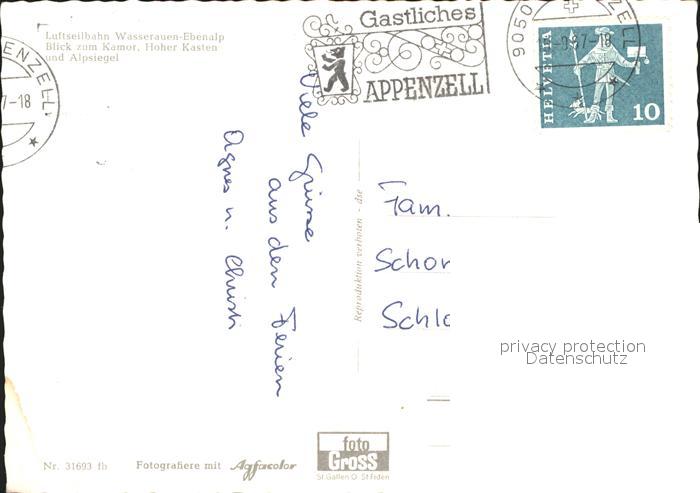 Luftseilbahn Wasserauen-Ebenalp
Blick zum Kamor, Hoher Kasten
und Alpsiegel
Gastliches
APPENZELL
9050
HELVETIA
10
ENZELL
7-18
Viele Grüsse
aus den Ferien
Agnes u. Christi
Reproduktion verboten - dse
Fam.
Schor
Schlo
privacy protection
Datenschutz
Nr. 31693 fb
Fotografiere mit Agfacolor
foto
Gross
St Gallen O St Fiden